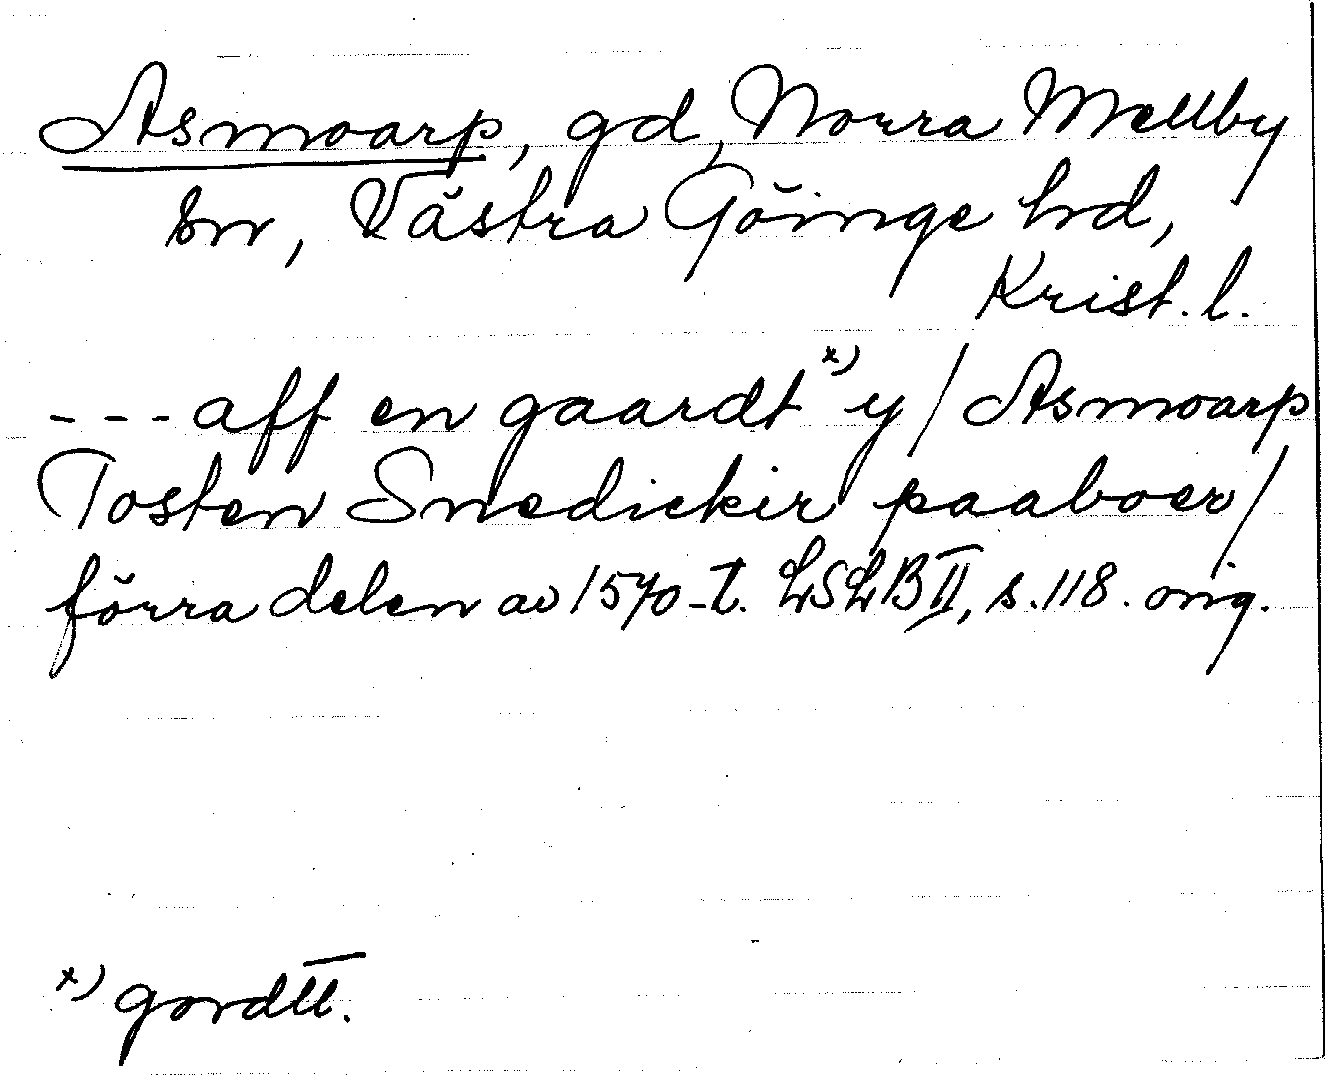 Asmoarp, gd, Norra Mellby
sn, Västra Göinge hd,
Krist. l.
--- aff en gaardt x) y / Asmoarp
Tosten Snedickir paaboer /
förra delen av 1570-t. LSLB II, s. 118. orig.
x) gordtt.